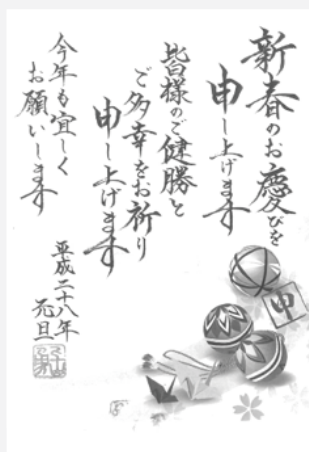 新春のお慶びを
申し上げます
皆様のご健勝と
ご多幸をお祈り
申し上げます
今年も宜しく
お願いします
平成二十八年
元旦
申